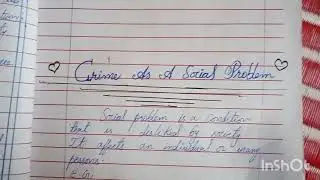 Crime As A Social Problem
Social problem is a condition
that is disliked by society
It affects an individual or many
persons.
E.G:
InShOt